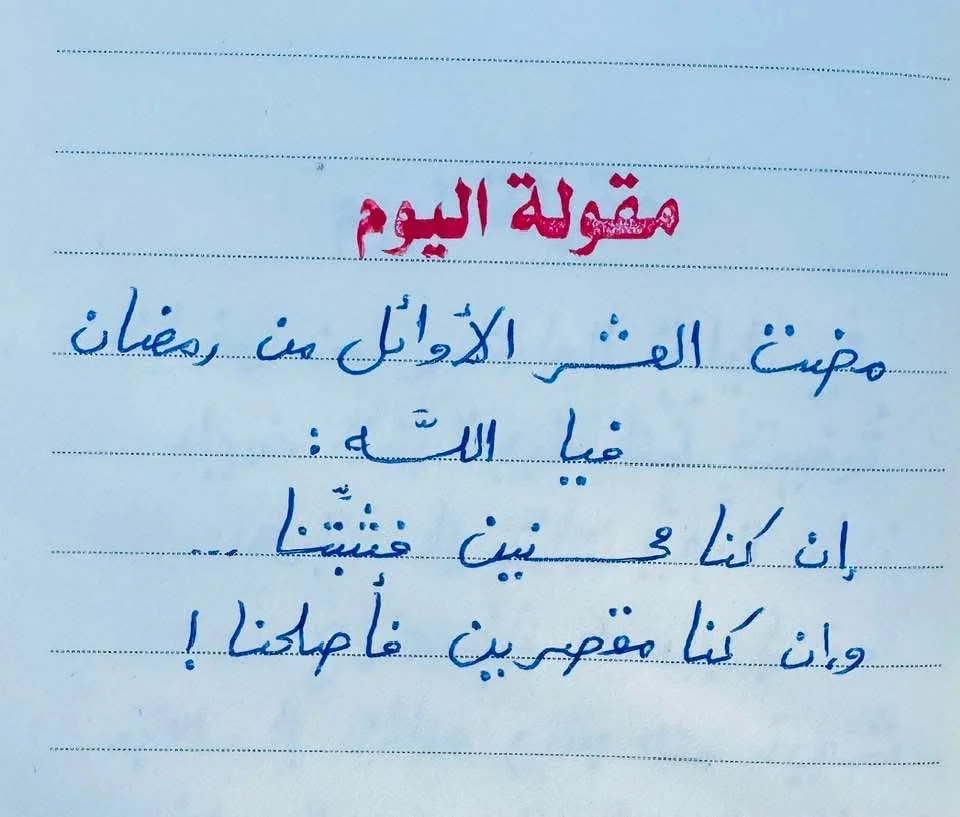 مقولة اليوم
مضت العشر الأوائل من رمضان
فيا اللَّه :
إن كنا محسنين فثبِّتنا ...
وإن كنا مقصرين فأصلحنا !